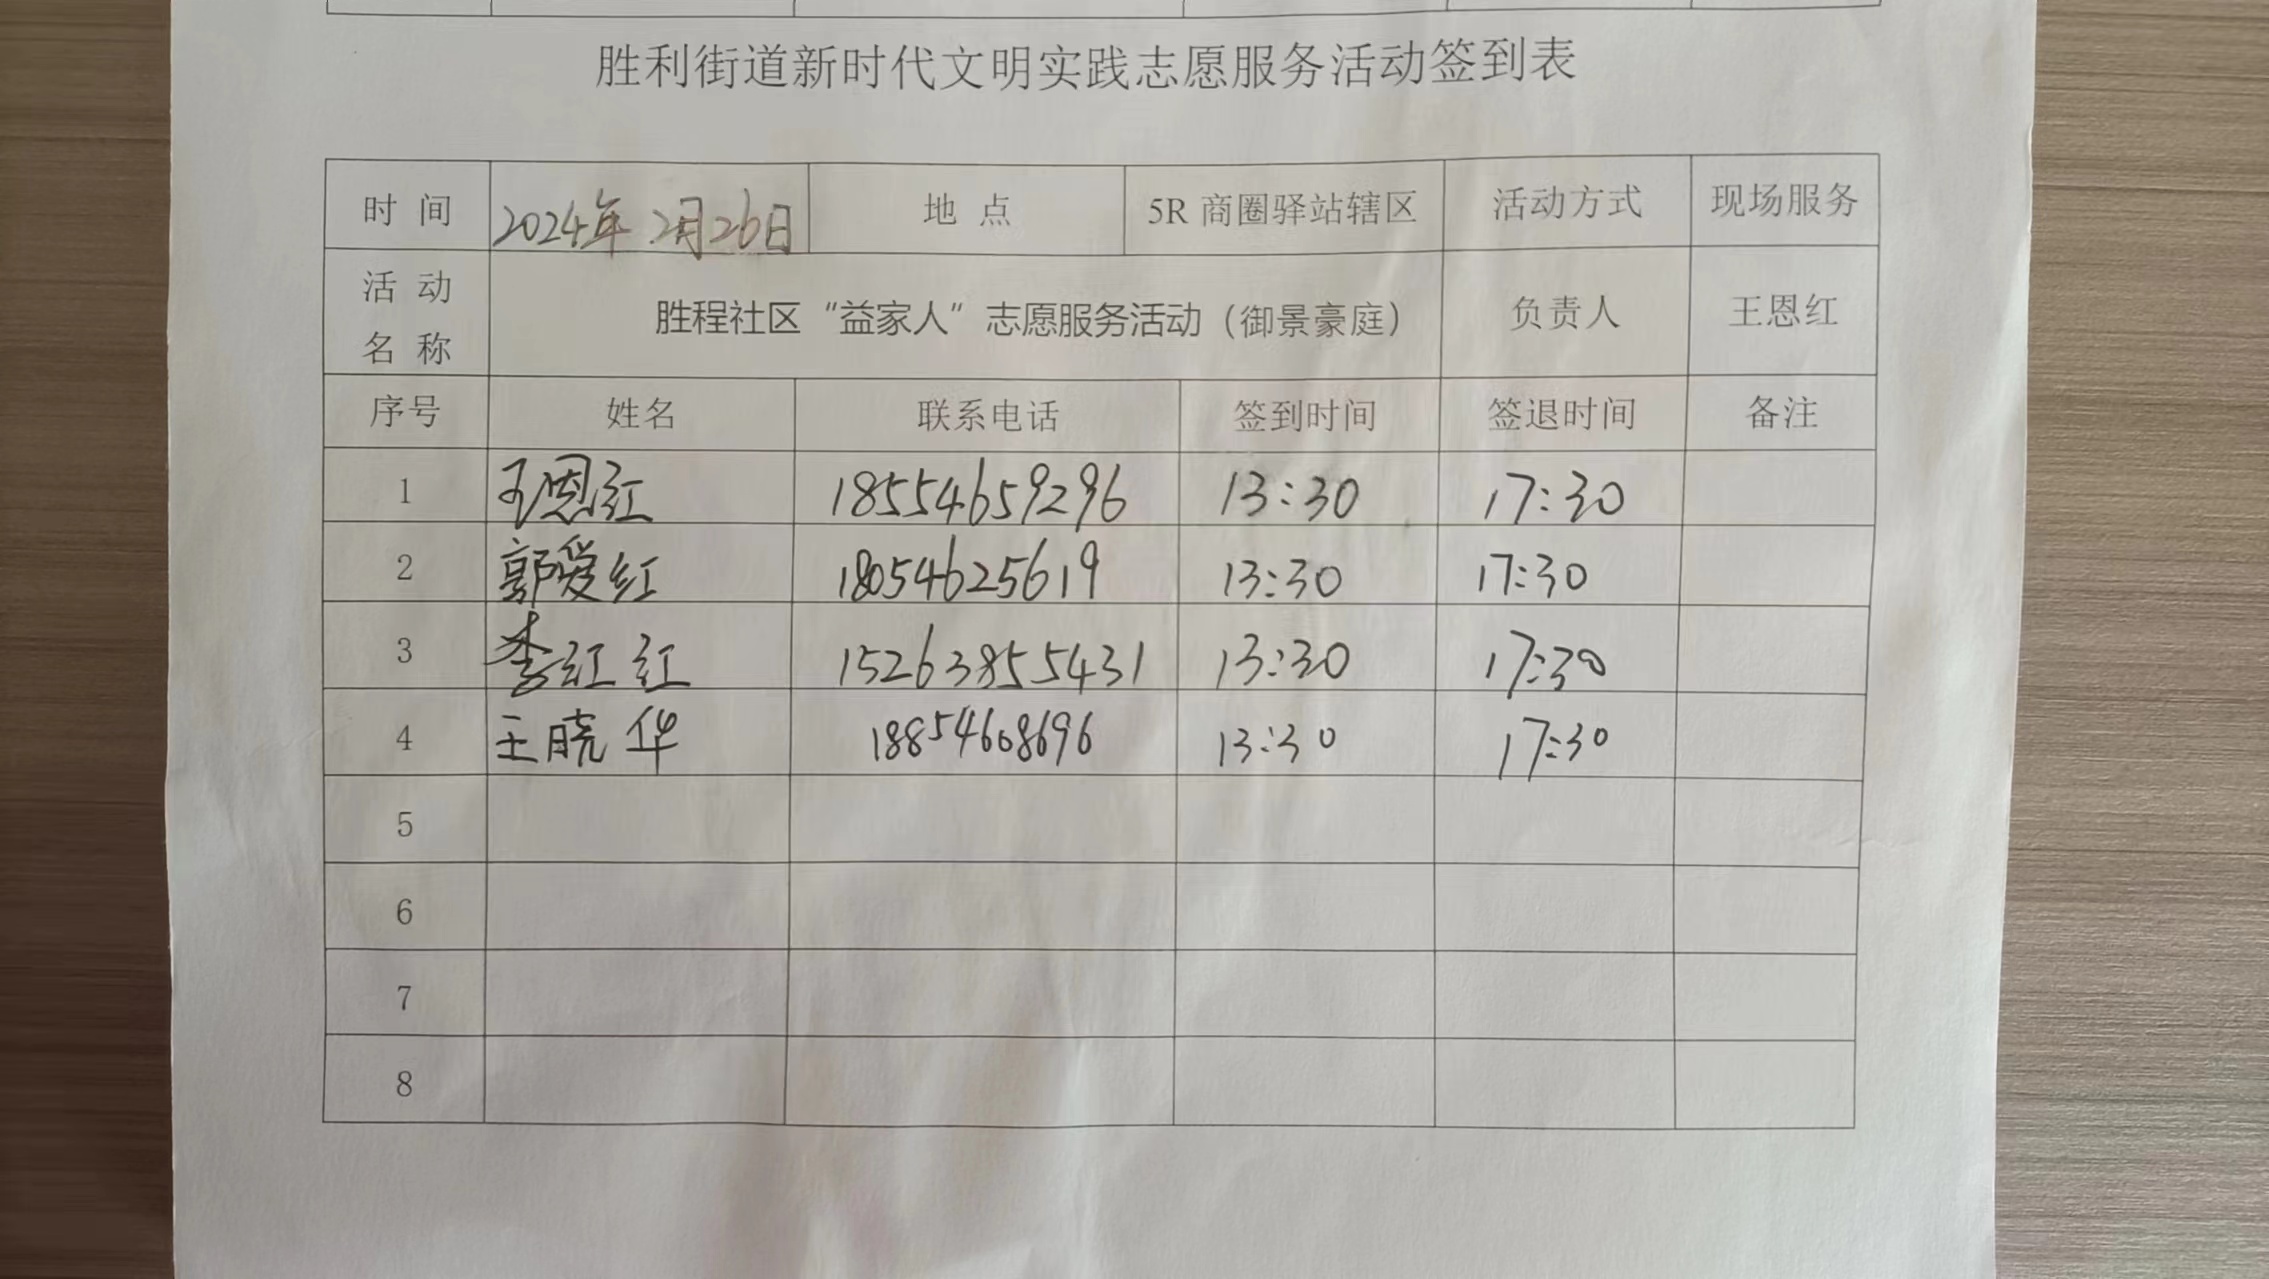 胜利街道新时代文明实践志愿服务活动签到表
时 间 2024年2月26日 地 点 5R 商圈驿站辖区 活动方式 现场服务
活 动
名 称 胜程社区“益家人”志愿服务活动（御景豪庭） 负责人 王恩红
序号 姓名 联系电话 签到时间 签退时间 备注
1 王恩红 18554659296 13:30 17:30
2 郭爱红 18054625619 13:30 17:30
3 李红红 15263855431 13:30 17:30
4 王晓华 18854608696 13:30 17:30
5
6
7
8